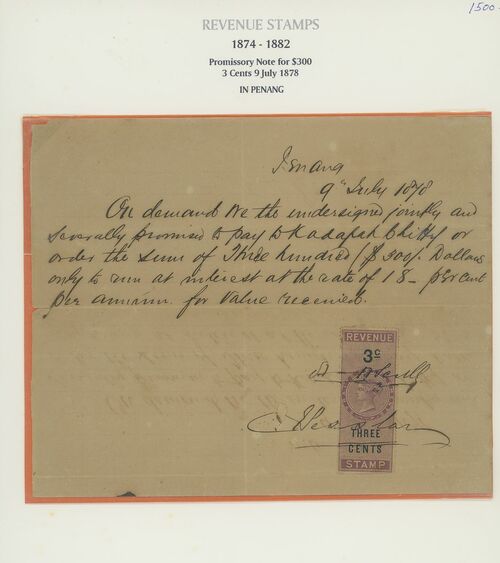 1500-
REVENUE STAMPS
1874 - 1882
Promissory Note for $300
3 Cents 9 July 1878
IN PENANG
Penang
9th July 1878
On demand we the undersigned jointly and
severally promise to pay to Kadapah Chitty or
order the sum of Three hundred ($ 300/. Dollars
only to run at interest at the rate of 18 - per cent
per annum. for value received.
REVENUE
3c
THREE
CENTS
STAMP